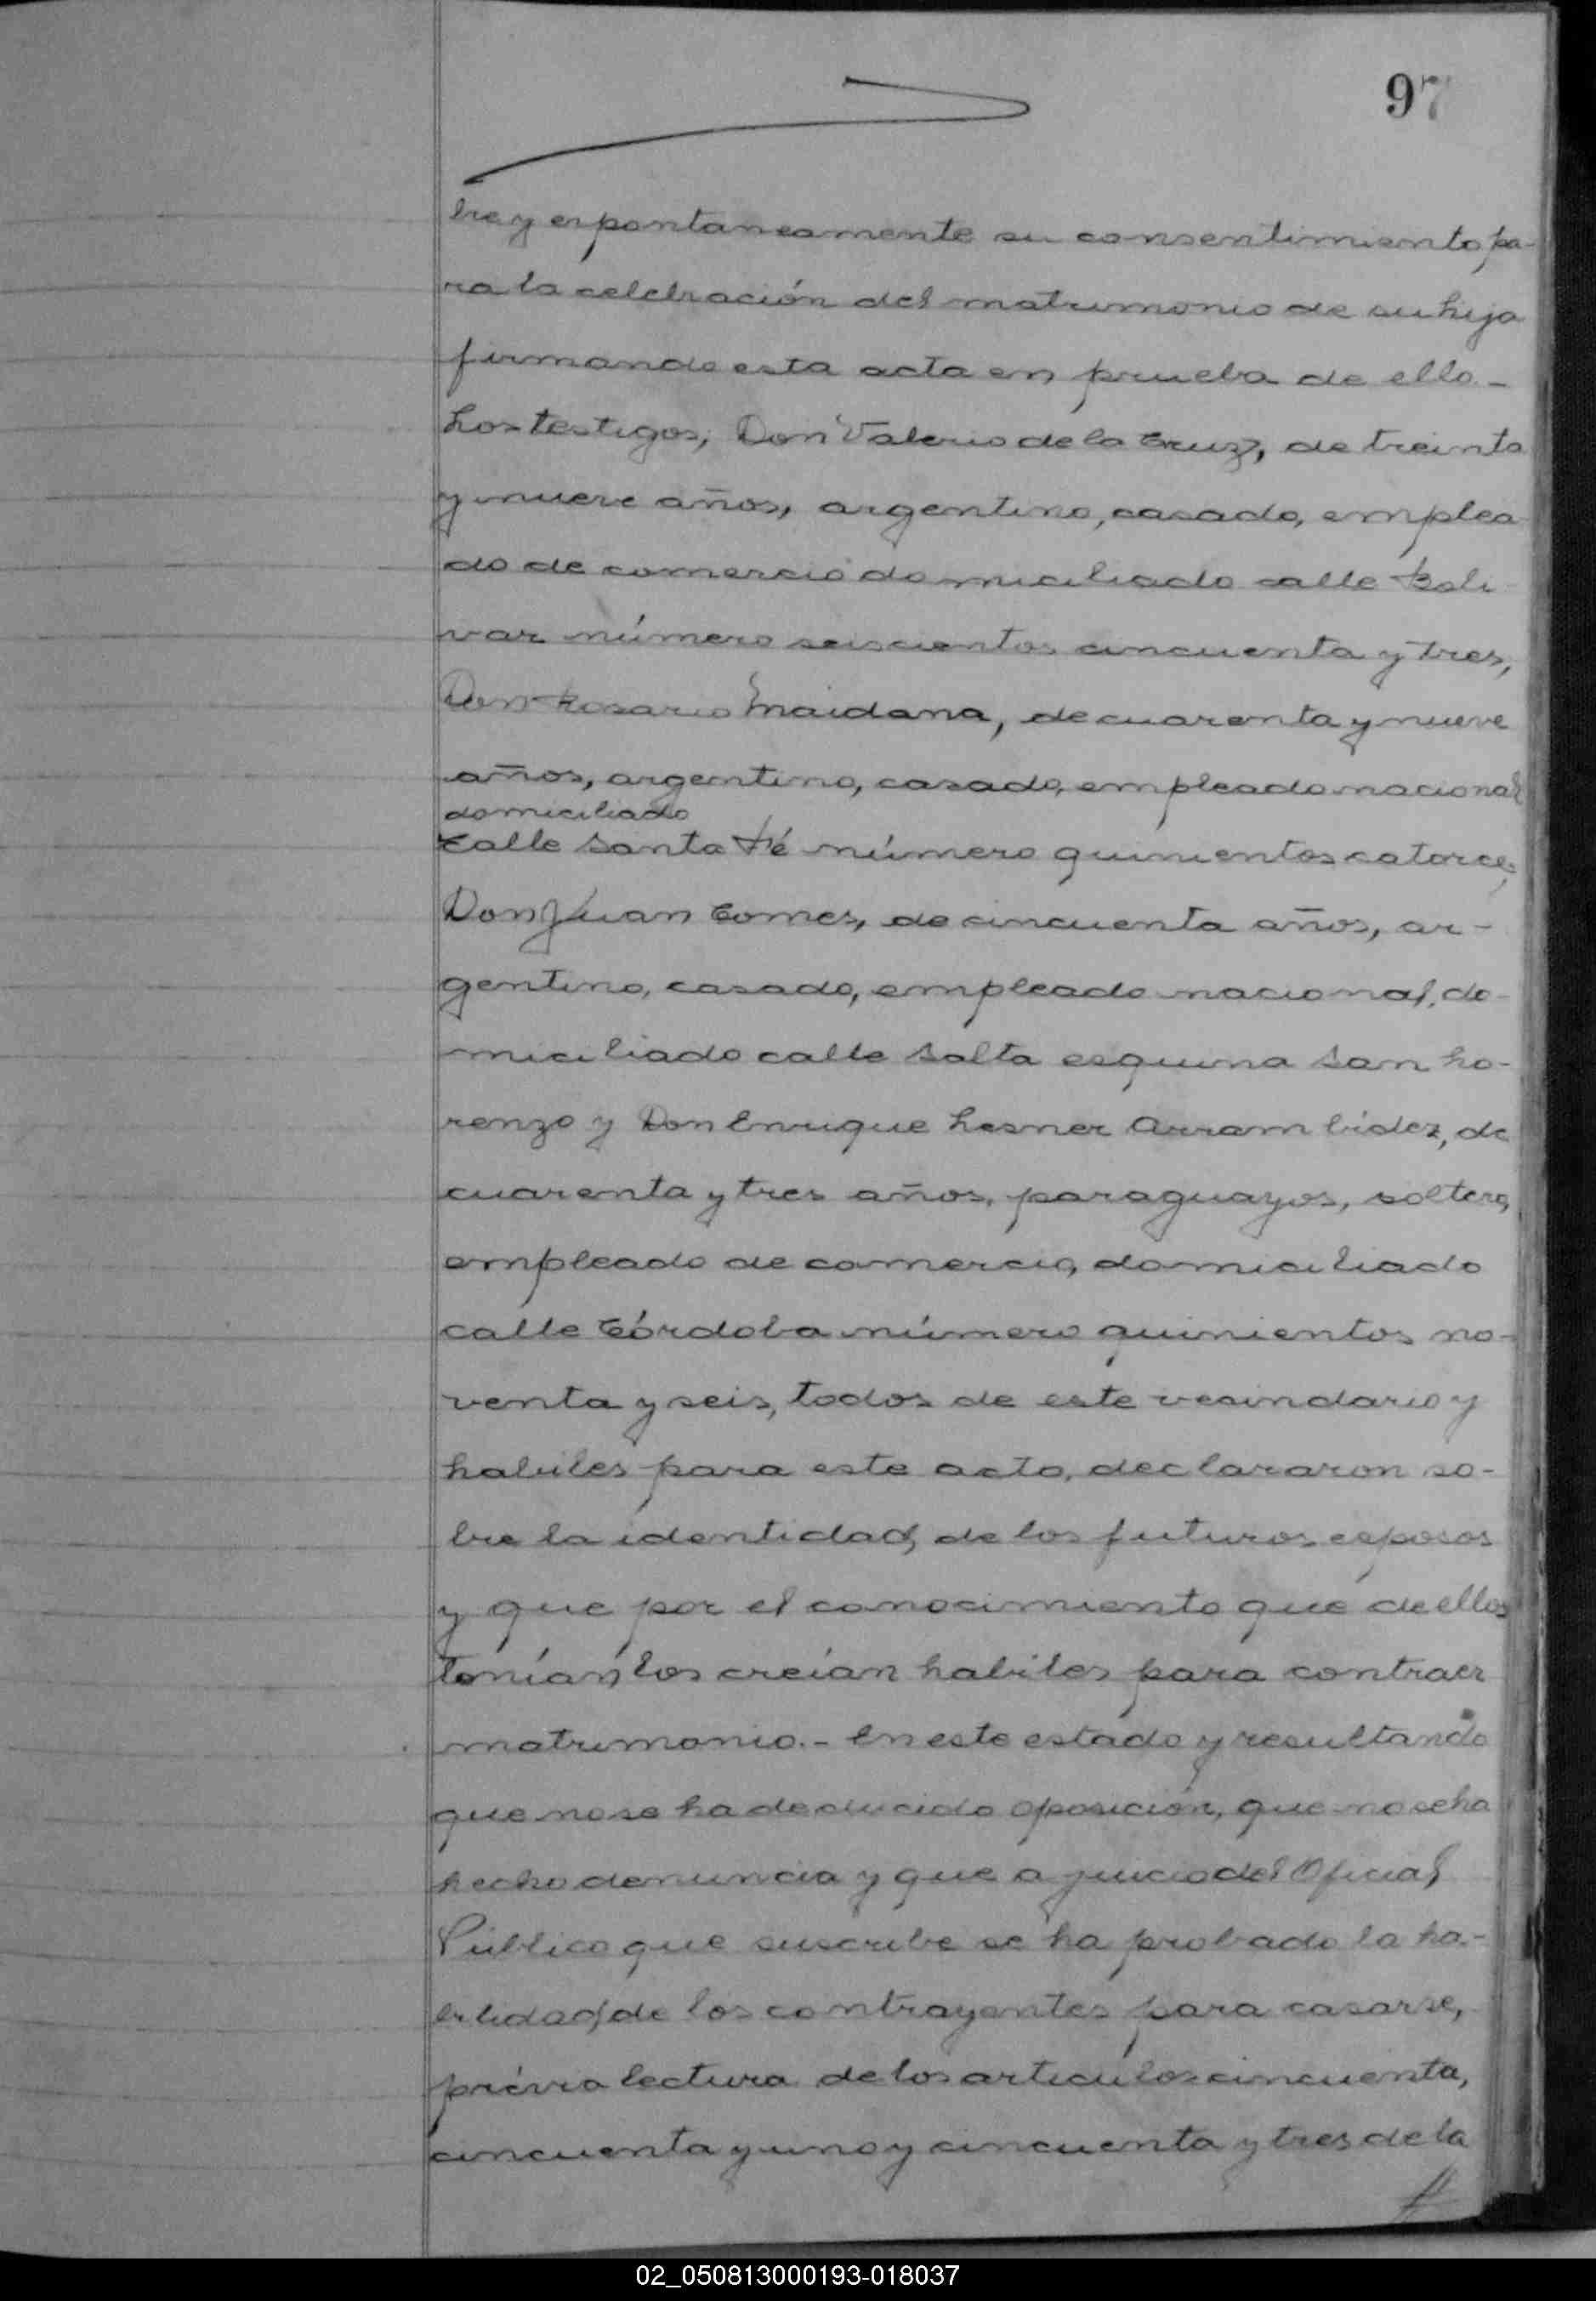 97
bre y espontaneamente su consentimiento pa-
ra la celebración del matrimonio de su hija
firmando esta acta en prueba de ello.-
Los testigos, Don Valerio de la Cruz, de treinta
y nueve años, argentino, casado, emplea
do de comercio domiciliado calle Boli
var número seiscientos cincuenta y tres,
Don Rosario Maidana, de cuarenta y nueve
años, argentino, casado, empleado nacional
domiciliado
calle Santa Fé número quinientos catorce,
Don Juan Gomes, de cincuenta años, ar-
gentino, casado, empleado nacional, do-
miciliado calle Salta esquina San Lo-
renzo y Don Enrique Lesner Arrambidez, de
cuarenta y tres años, paraguayos, soltero,
empleado de comercio, domiciliado
calle Córdoba número quinientos no-
venta y seis, todos de este vesindario y
habiles para este acto, declararon so-
bre la identidad, de los futuros esposos
y que por el conocimiento que de ellos
tenían los creían habiles para contraer
matrimonio.- En este estado y resultando
que no se ha deducido oposición, que no se ha
hecho denuncia y que a juicio del Oficial
Público que suscribe se ha probado la ha-
bilidad, de los contrayentes para casarse,
prévia lectura de los artículos cincuenta,
cincuenta y uno y cincuenta y tres de la
02_050813000193-018037